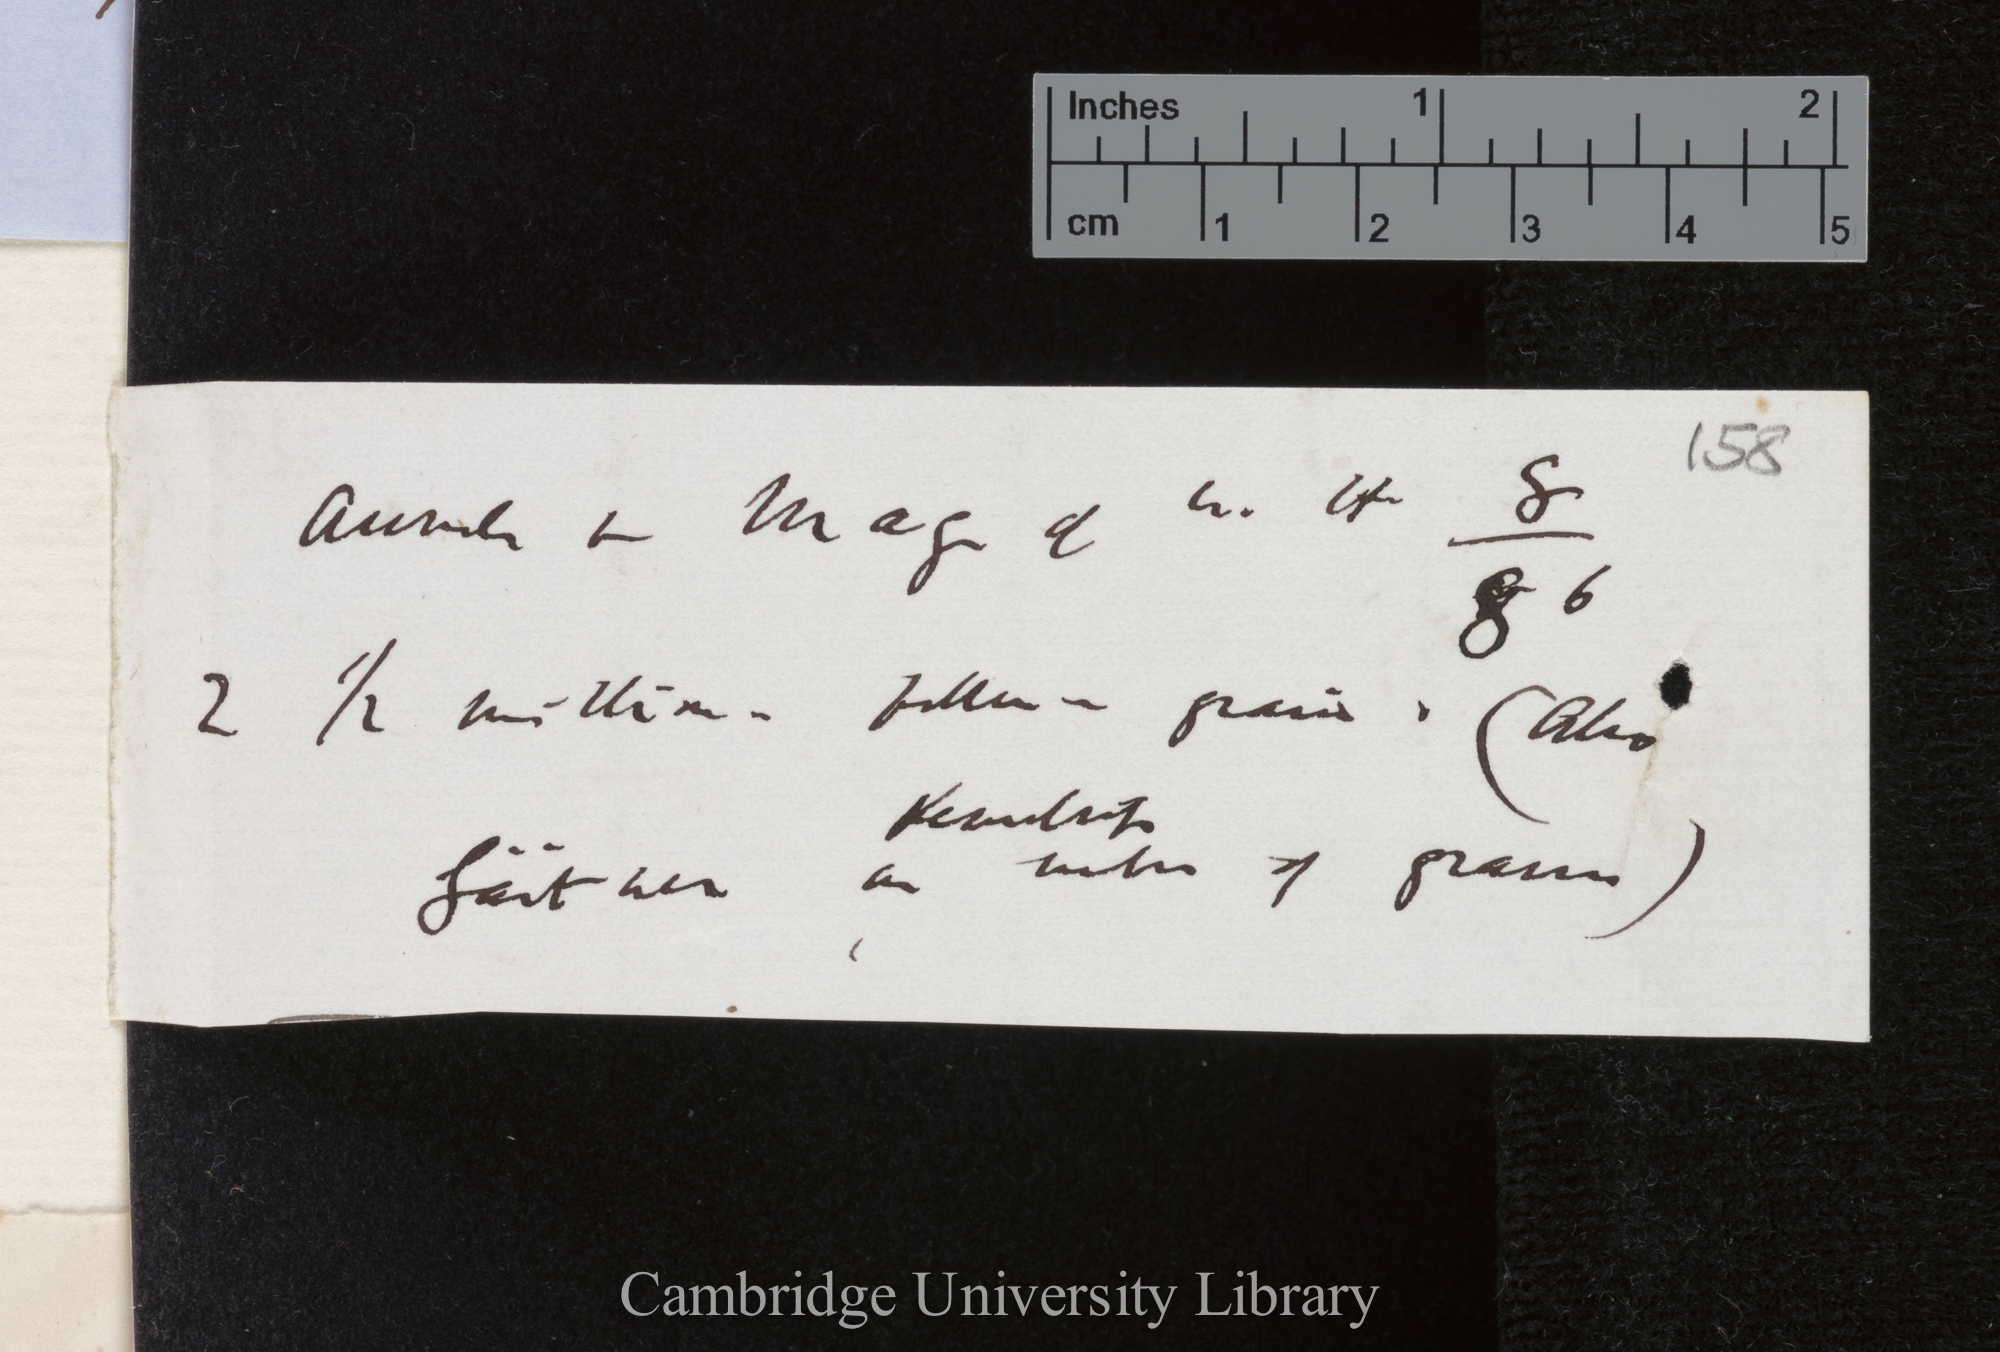 Inches 1 2
cm 1 2 3 4 5
158
Annals & Mag of N. H. 8
86
2 1/2 millions pollen-grains. (Also
Kenwlrst
Gärtner on number of grains)
Cambridge University Library